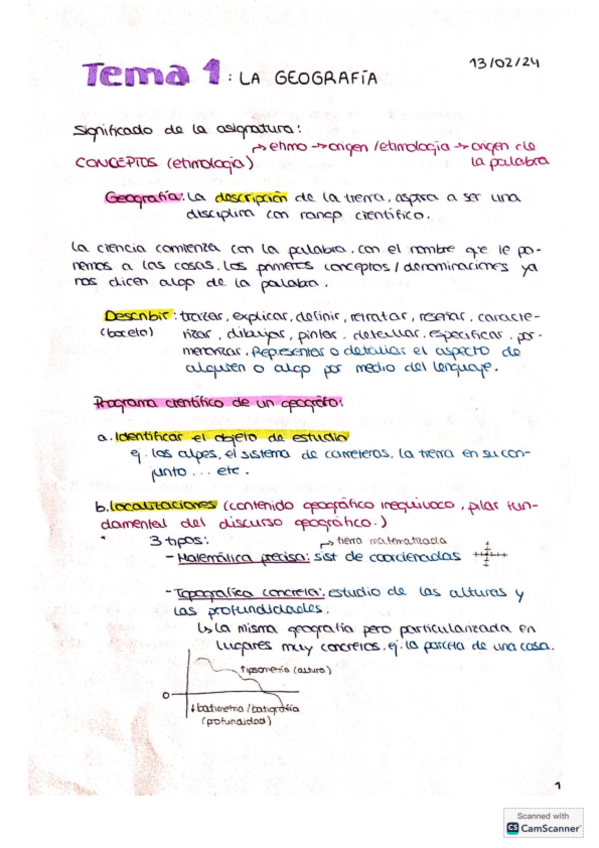 Tema 1: LA GEOGRAFÍA
13/02/24
Significado de la asignatura:
→ etimo → origen / etimología → origen de
CONCEPTOS (etimología) la palabra
Geografía: La descripción de la tierra, aspira a ser una
disciplina con rango científico.
La ciencia comienza con la palabra, con el nombre que le po-
nemos a las cosas. Los primeros conceptos / denominaciones ya
nos dicen algo de la palabra.
Describir: trazar, explicar, definir, retratar, reseñar, caracte-
(boceto) rizar, dibujar, pintar, detallar, especificar, por-
menorizar. Representar o detallar el aspecto de
alguien o algo por medio del lenguaje.
Programa científico de un geógrafo:
a. Identificar el objeto de estudio
ej. los alpes, el sistema de carreteras, la tierra en su con-
junto ... etc.
b. Localizaciones (contenido geográfico inequívoco, pilar fun-
damental del discurso geográfico.)
3 tipos: → tierra matematizada
- Matemática precisa: sist de coordenadas
- Topográfica concreta: estudio de las alturas y
las profundidades.
↳ La misma geografía pero particularizada en
lugares muy concretos. ej. la parcela de una casa.
↑ipsometría (altura)
0
↓batimetría / batigrafía
(profundidad)
1
Scanned with
CS CamScanner